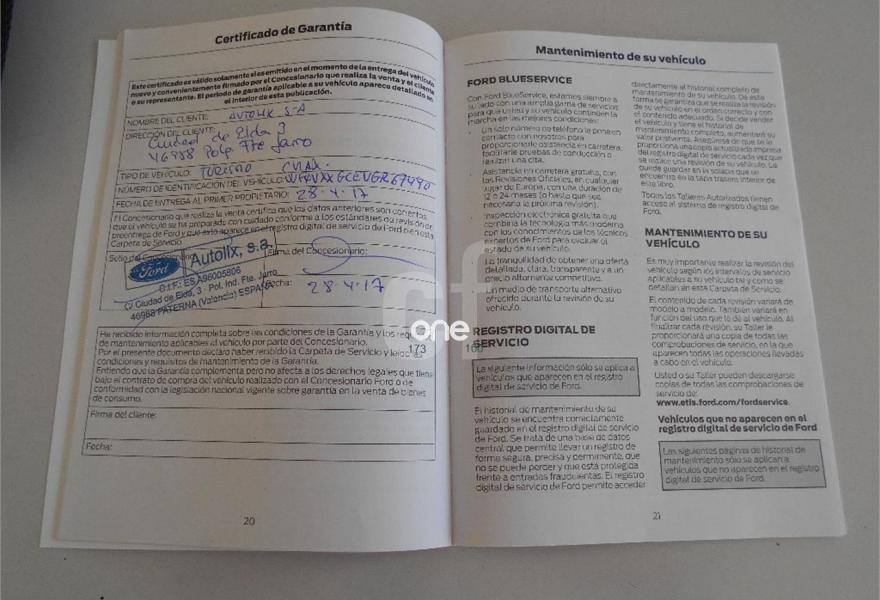 Certificado de Garantía
Este certificado es válido solamente si es emitido en el momento de la entrega del vehículo
nuevo y convenientemente firmado por el Concesionario que realiza la venta y el cliente
o su representante. El período de garantía aplicable a su vehículo aparece detallado en
el interior de esta publicación.
NOMBRE DEL CLIENTE: AUTOLIX S-A
DIRECCIÓN DEL CLIENTE:
Ciudad de Elda 3
46988 Pol. Fte Jarro
TIPO DE VEHÍCULO: TURISMO CMAX.
NÚMERO DE IDENTIFICACIÓN DEL VEHÍCULO: WF0VXXGCEVGR67490
FECHA DE ENTREGA AL PRIMER PROPIETARIO: 28-4-17
El Concesionario que realiza la venta certifica que los datos anteriores son correctos,
que el vehículo se ha preparado con cuidado conforme a los estándares de revisión de
preentrega de Ford y que esto aparece en el registro digital de servicio de Ford o en esta
Carpeta de Servicio.
Sello del Concesionario:
Firma del Concesionario:
Ford Autolix, s.a.
C.I.F.: ES A96005806
C/ Ciudad de Elda, 3 - Pol. Ind. Fte. Jarro
46988 PATERNA (Valencia) ESPAÑA
Fecha: 28-4-17
He recibido información completa sobre las condiciones de la Garantía y los
de mantenimiento aplicables al vehículo por parte del Concesionario.
Por el presente documento declaro haber recibido la Carpeta de Servicio y leído las
condiciones y requisitos de mantenimiento de la Garantía.
Entiendo que la Garantía complementa pero no afecta a los derechos legales que tiene
bajo el contrato de compra del vehículo realizado con el Concesionario Ford o de
conformidad con la legislación nacional vigente sobre garantía en la venta de bienes
de consumo.
Firma del cliente:
Fecha:
20
cf
one
173
160
Mantenimiento de su vehículo
FORD BLUESERVICE
Con Ford BlueService, estamos siempre a
su lado con una amplia gama de servicios
para que usted y su vehículo continúen la
marcha en las mejores condiciones:
· Un solo número de teléfono le pone en
contacto con nosotros para
proporcionarle asistencia en carretera,
facilitarle pruebas de conducción o
realizar una cita.
· Asistencia en carretera gratuita, con
las Revisiones Oficiales, en cualquier
lugar de Europa, con una duración de
12 o 24 meses (o hasta que sea
necesaria la próxima revisión).
· Inspección electrónica gratuita que
combina la tecnología más moderna
con los conocimientos de los técnicos
expertos de Ford para evaluar el
estado de su vehículo.
· La tranquilidad de obtener una oferta
detallada, clara, transparente y a un
precio altamente competitivo.
· Un medio de transporte alternativo
ofrecido durante la revisión de su
vehículo.
REGISTRO DIGITAL DE
SERVICIO
La siguiente información sólo se aplica a
vehículos que aparecen en el registro
digital de servicio de Ford.
El historial de mantenimiento de su
vehículo se encuentra correctamente
guardado en el registro digital de servicio
de Ford. Se trata de una base de datos
central que permite llevar un registro de
forma segura, precisa y permanente, que
no se puede perder y que está protegida
frente a entradas fraudulentas. El registro
digital de servicio de Ford permite acceder
directamente al historial completo de
mantenimiento de su vehículo. De esta
forma se garantiza que se realiza la revisión
de su vehículo en el orden correcto y con
el contenido adecuado. Si decide vender
el vehículo y tiene el historial de
mantenimiento completo, aumentará su
valor postventa. Asegúrese de que se le
proporciona una copia actualizada impresa
del registro digital de servicio cada vez que
se realice una revisión de su vehículo. La
puede guardar en la solapa que se
encuentra en la tapa trasera interior de
este libro.
Todos los Talleres Autorizados tienen
acceso al sistema de registro digital de
Ford.
MANTENIMIENTO DE SU
VEHÍCULO
Es muy importante realizar la revisión del
vehículo según los intervalos de servicio
aplicables a su vehículo tal y como se
detallan en esta Carpeta de Servicio.
El contenido de cada revisión variará de
modelo a modelo. También variará en
función del uso que le dé al vehículo. Al
finalizar cada revisión, su Taller le
proporcionará una copia de todas las
comprobaciones de servicio, en la que
aparecen todas las operaciones llevadas
a cabo en el vehículo.
Usted o su Taller pueden descargarse
copias de todas las comprobaciones de
servicio de:
www.etis.ford.com/fordservice.
Vehículos que no aparecen en el
registro digital de servicio de Ford
Las siguientes páginas de historial de
mantenimiento sólo se aplican a
vehículos que no aparecen en el registro
digital de servicio de Ford.
21